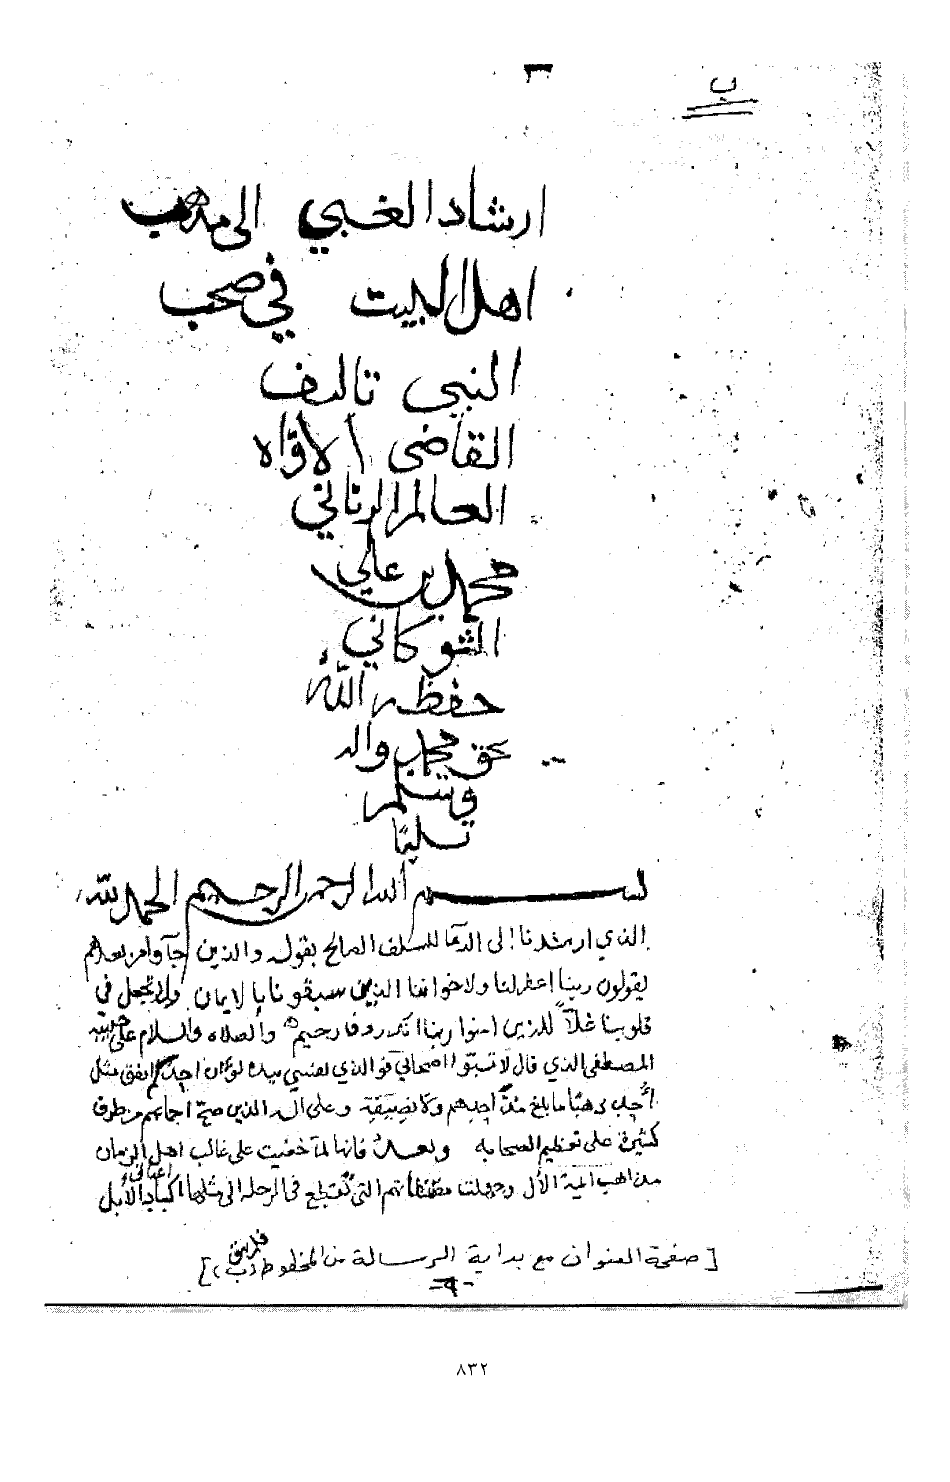 ب
ارشاد الغبي الى مذهب
اهل البيت في صحب
النبي تاليف
القاضي الاوّاه
العالم الرباني
محمد بن علي
الشوكاني
حفظه الله
بحق محمد واله
وسلم
تسليمًا
بسم الله الرحمن الرحيم الحمد لله
الذي ارشدنا الى الدعا للسلف الصالح بقوله والذين جآوا من بعدهم
يقولون ربنا اغفر لنا ولاخواننا الذين سبقونا بالايمان ولا تجعل في
قلوبنا غلاّ للذين امنوا ربنا انك روف رحيم والصلاه والسلام على حبيبه
المصطفى الذي قال لا تسبّوا اصحابي فوالذي نفسي بيده لو ان احدكم انفق مثل
أُحد ذهبًا ما بلغ مدّ احدهم ولا نصيفه وعلى اله الذين صحّ اجماعهم من طرق
كثيرة على تعظيم الصحابه وبعد فانها لما خفيت على غالب اهل الزمان
مذاهب ايمة الأل وجهلت التي تُقطع في الرحله الى مثلها اكباد الأبل
[ صفحة العنوان مع بداية الرسالة من المخطوط (ب) ]
٨٣٢